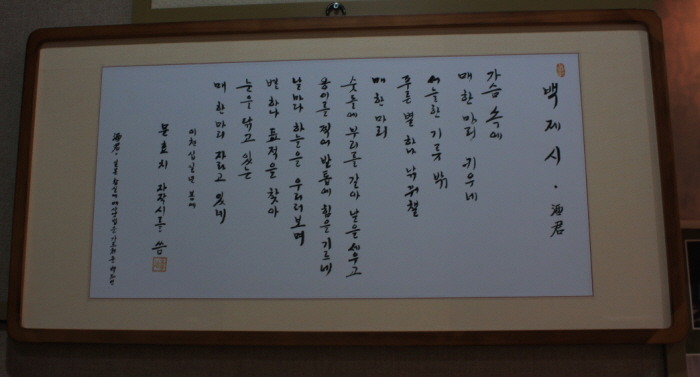 백제시 · 海君
가슴 속에
매 한 마리 키우네
서늘한 기륭 밖
푸른 별 하나 낚위챌
매 한 마리
숫돌에 부리를 갈아 날을 세우고
옹이를 찍어 발톱에 힘을 기르네
날마다 하늘을 우러러보며
별 하나 표적을 찾아
눈을 닦고 있는
매 한 마리 자라고 있네
이천십일년 봄에
문효치 자작시를 씀
海君